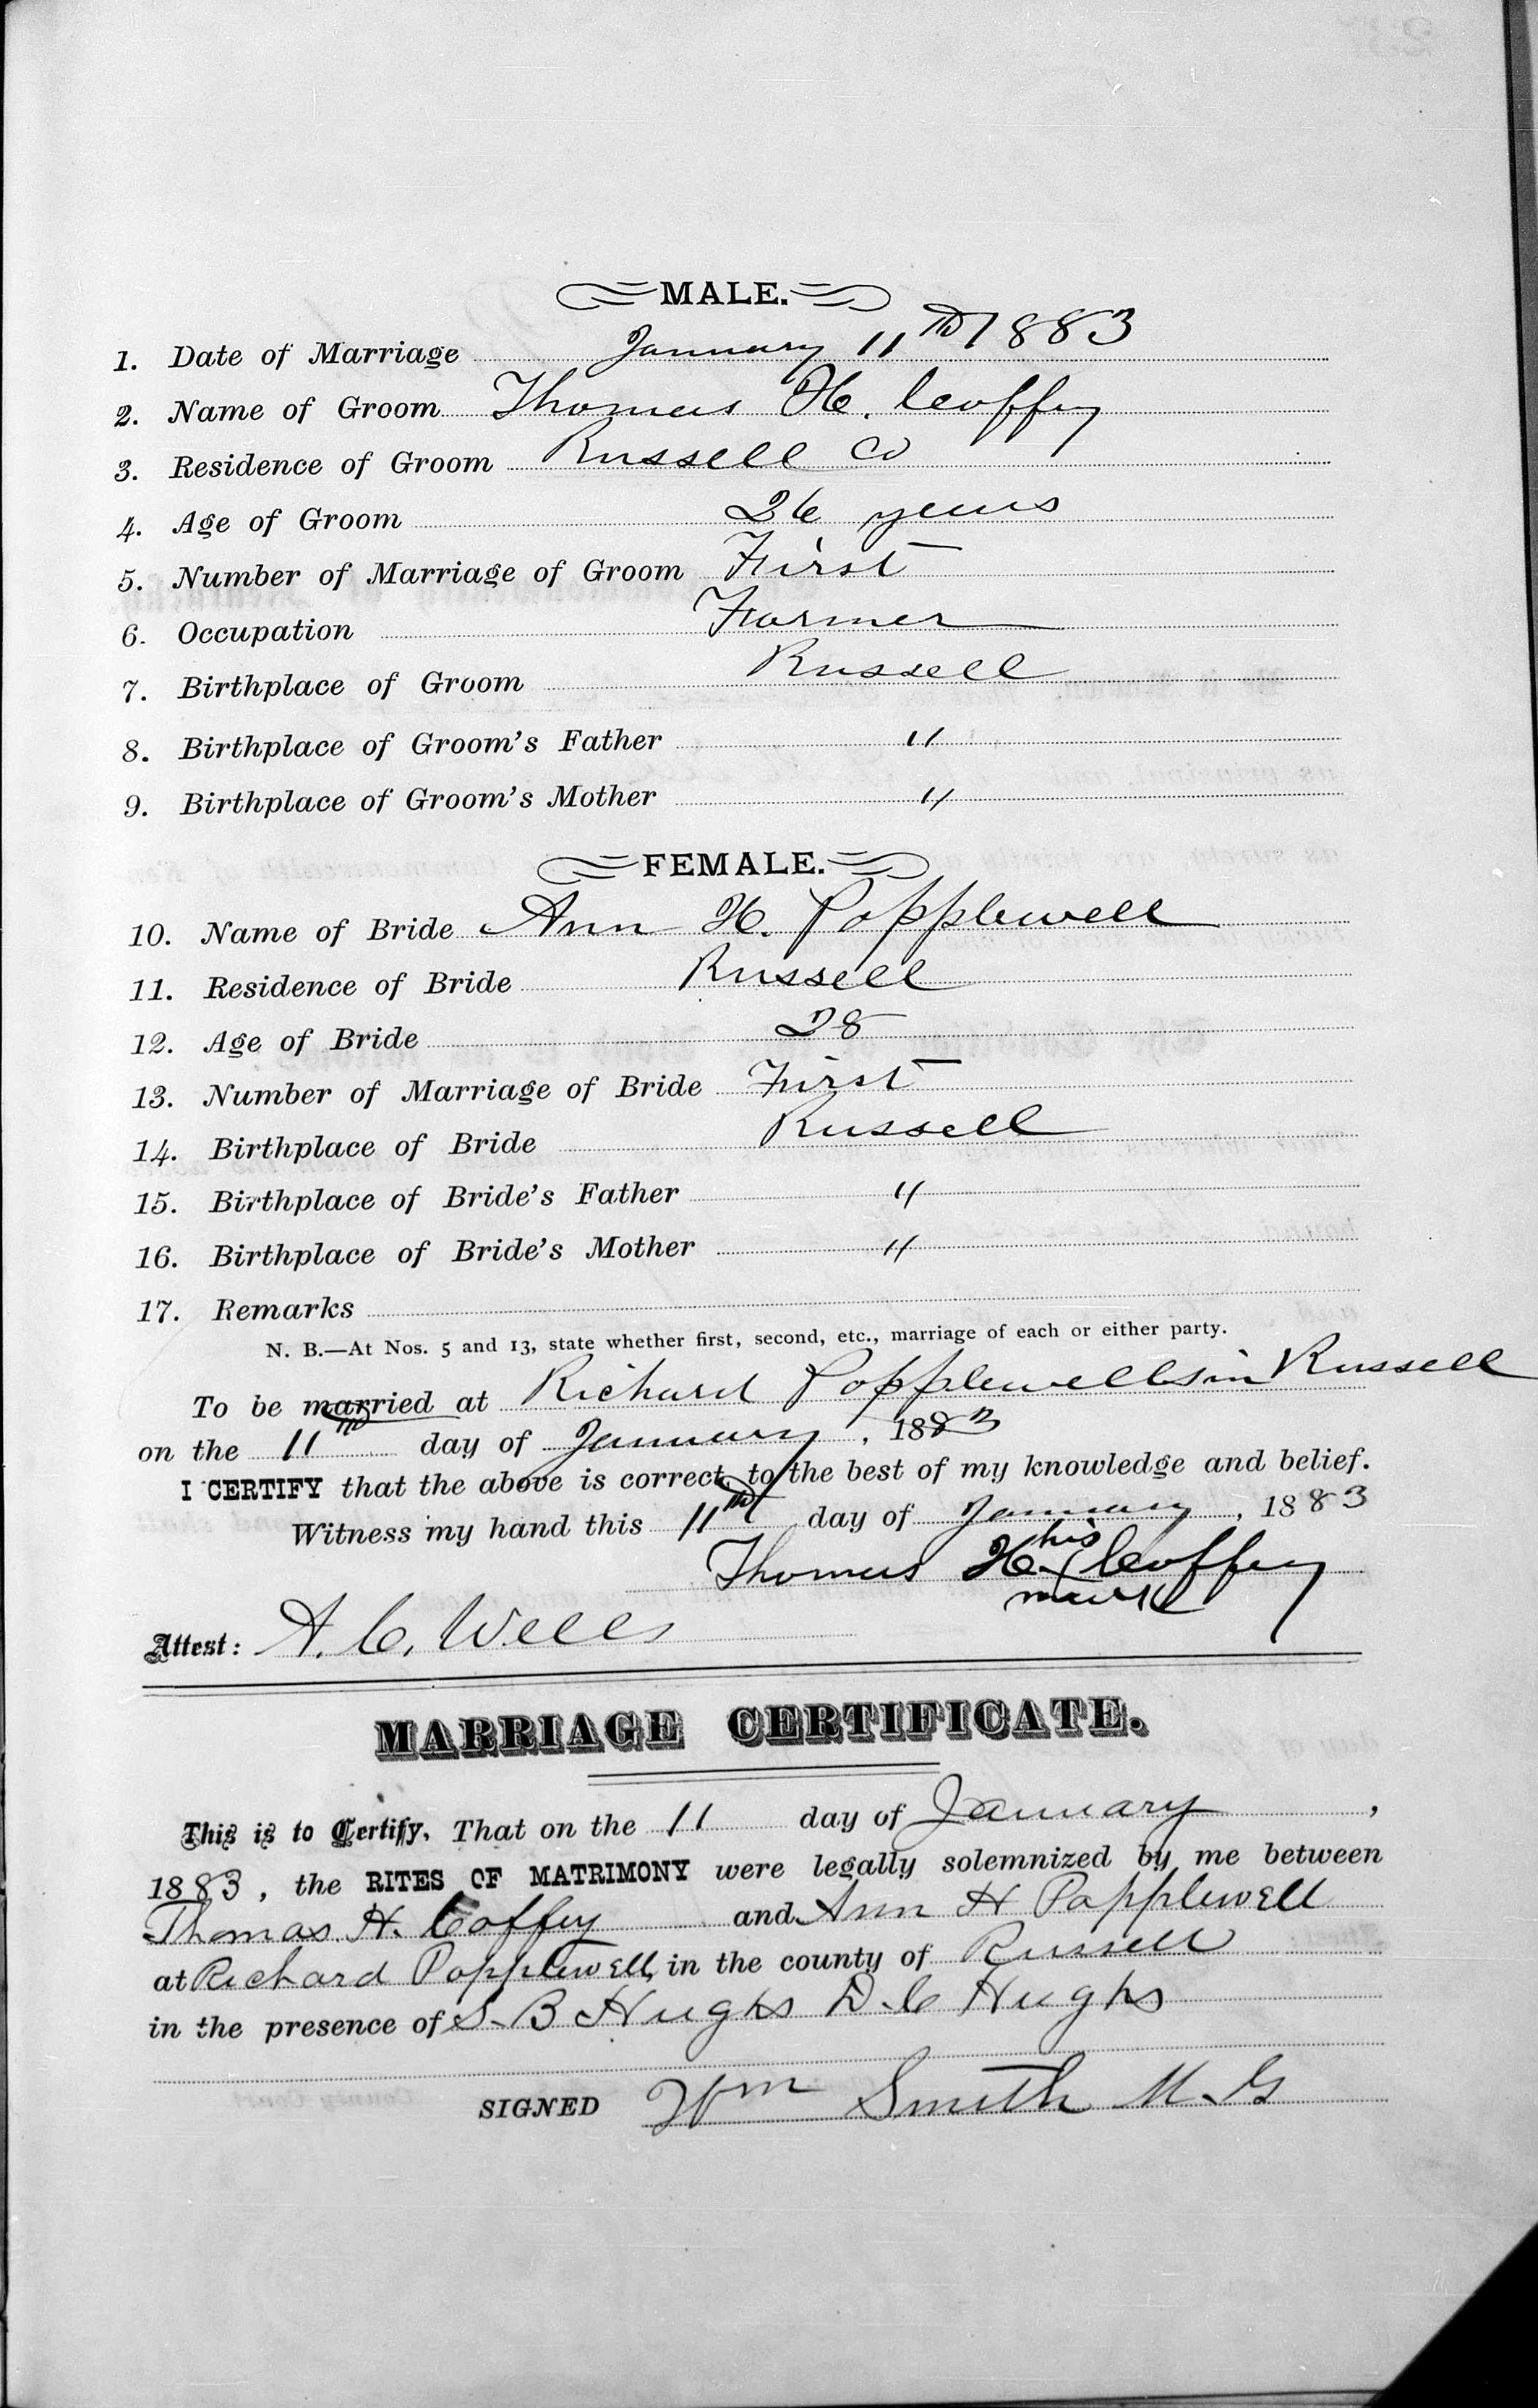 MALE.
1. Date of Marriage January 11th 1883
2. Name of Groom Thomas H. Coffey
3. Residence of Groom Russell Co
4. Age of Groom 26 years
5. Number of Marriage of Groom First
6. Occupation Farmer
7. Birthplace of Groom Russell
8. Birthplace of Groom's Father "
9. Birthplace of Groom's Mother "
FEMALE.
10. Name of Bride Ann H. Popplewell
11. Residence of Bride Russell
12. Age of Bride 28
13. Number of Marriage of Bride First
14. Birthplace of Bride Russell
15. Birthplace of Bride's Father "
16. Birthplace of Bride's Mother "
17. Remarks
N. B.—At Nos. 5 and 13, state whether first, second, etc., marriage of each or either party.
To be married at Richard Popplewells in Russell
on the 11th day of January, 1883
I CERTIFY that the above is correct to the best of my knowledge and belief.
Witness my hand this 11th day of January, 1883
his
Thomas H. Coffey
mark
Attest: A. C. Wells
MARRIAGE CERTIFICATE.
This is to Certify, That on the 11 day of January,
1883, the RITES OF MATRIMONY were legally solemnized by me between
Thomas H. Coffey and Ann H Popplewell
at Richard Popplewell, in the county of Russell
in the presence of S. B Hughs D. C Hughs
SIGNED Wm Smith M. G